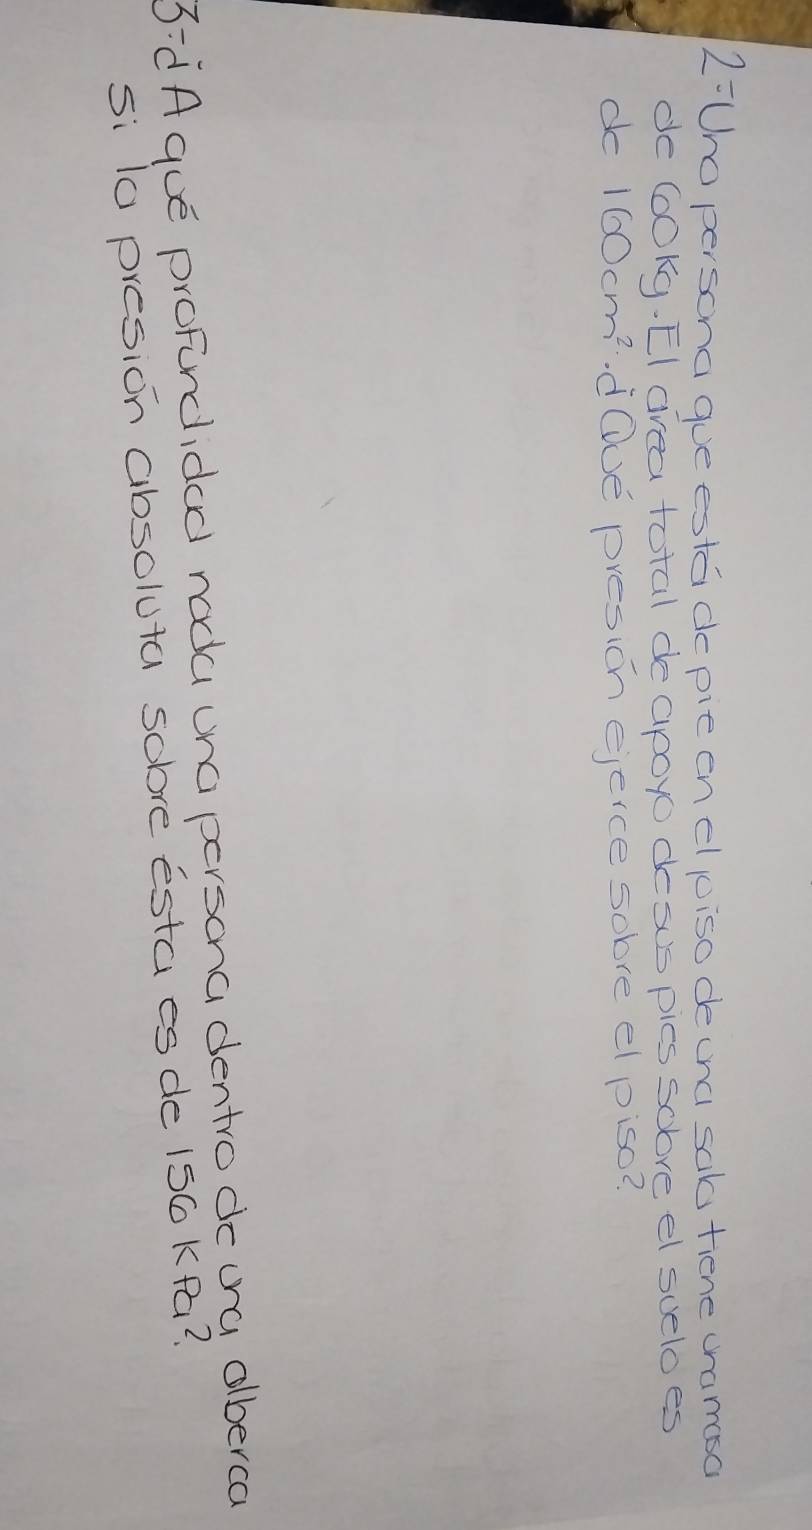 2-Una persona que está de pie en el piso de una sala tiene una masa
de 60kg. El área total de apoyo de sus pies sobre el suelo es
de 160cm². ¿Qué presión ejerce sobre el piso?
3-¿A qué profundidad nada una persona dentro de una alberca
si la presión absoluta sobre ésta es de 156 kPa?